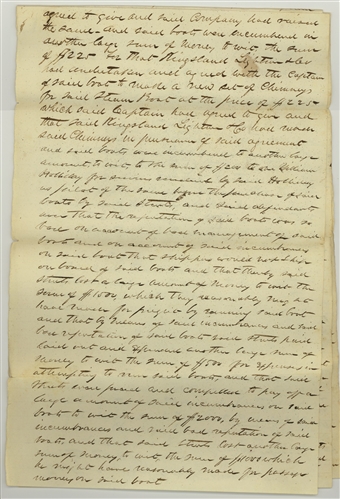 agreed to give and said Company had earned
the same and said boat was incumbered in
another large sum of money to wit, the sum
of $225 for that Kingsland Lightner & Co
had undertaken and agreed with the Captain
of said boat to make a new set of Chimneys
for said Steam Boat at the price of $225
which said Captain had agreed to give and
that said Kingsland Lightner & Co had made
said Chimneys in pursuance of said agreement
and said boat was incumbered to another large
amount, to wit, to the sum of $200 to one William
Holliday for services rendered by said Holliday
as pilot of the same before the purchase of said
boat by said Streets, and said defendant
says that the reputation of said boat was so
bad on account of bad management of said
boat and on account of said incumbrances
on said boat that shippers would not ship
on board of said boat and that thereby said
Streets lost a large amount of money to wit the
sum of $1000, which they reasonably might
have made for freight by running said boat
and that by means of said incumbrances and said
bad reputation of said boat said Streets paid
laid out and expended another large sum of
money to wit the sum of $500 for expenses in
attempting to run said boat, and that said
Streets were forced and compelled to pay off a
large amount of said incumbrances on said
boat to wit the sum of $2000, by means of said
incumbrances and said bad reputation of said
boat, and that said Streets lost another large
sum of money, to wit, the sum of $1000 which
he might have reasonably made for passage
money on said boat